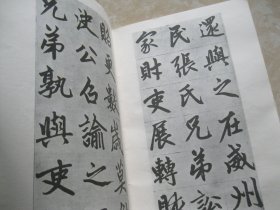 還與之在威州
民張氏兄弟訟
家財吏展轉賕
賂更數歲莫
決公召諭之
兄弟孰與吏